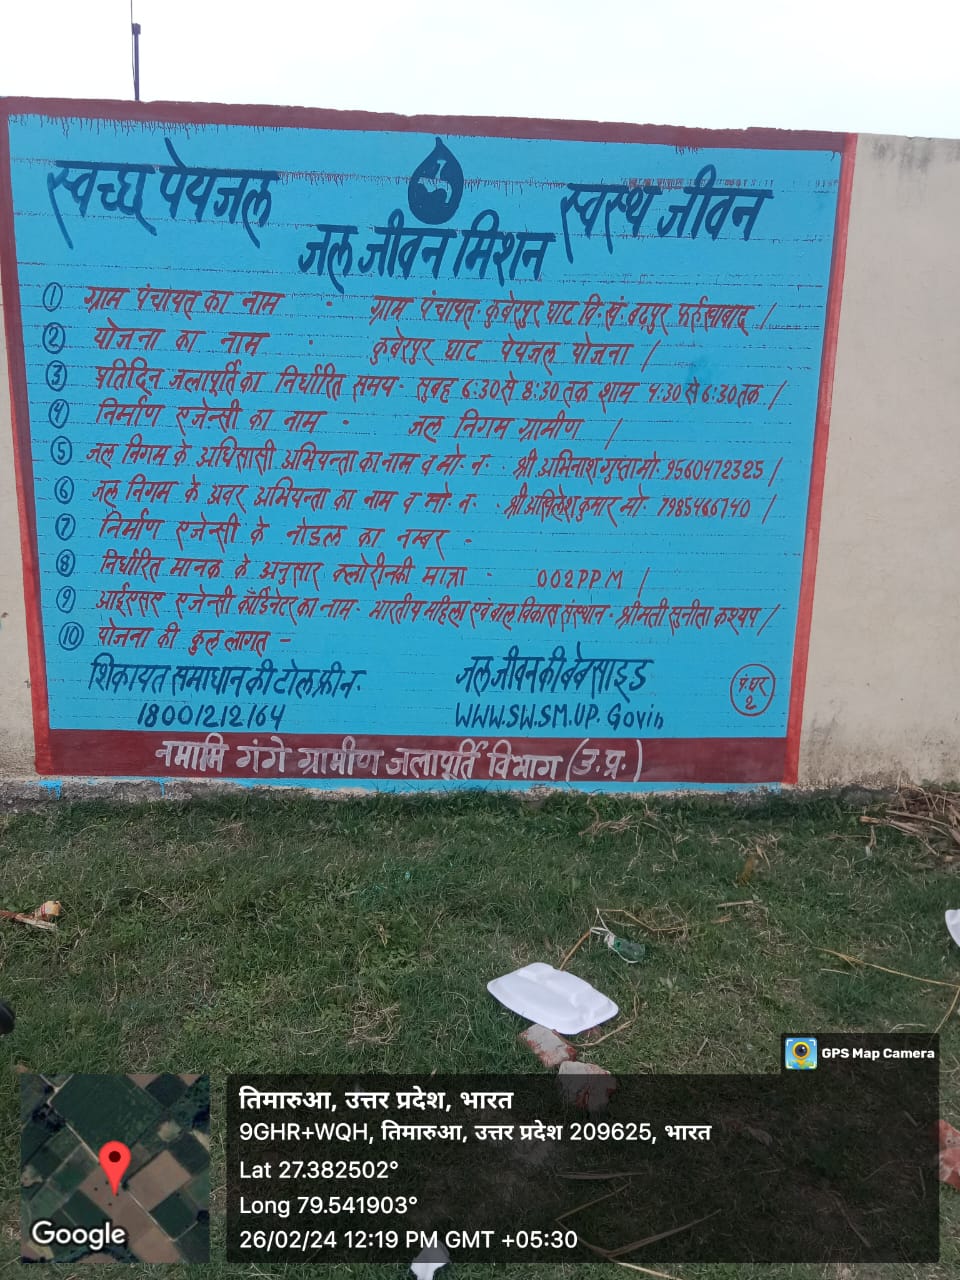 स्वच्छ पेयजल
स्वस्थ जीवन
जल जीवन मिशन
① ग्राम पंचायत का नाम - ग्राम पंचायत. कुबेरपुर घाट वि. खं. बढ़पुर फर्रुखाबाद /
② योजना का नाम - कुबेरपुर घाट पेयजल योजना /
③ प्रतिदिन जलापूर्ति का निर्धारित समय - सुबह 6:30 से 8:30 तक शाम 4:30 से 6:30 तक /
④ निर्माण एजेन्सी का नाम - जल निगम ग्रामीण /
⑤ जल निगम के अधिसासी अभियन्ता का नाम व मो. न. श्री अभिनाश गुप्ता मो. 9560472325 /
⑥ जल निगम के अवर अभियन्ता का नाम व मो. न. श्री अखिलेश कुमार मो. 7985466740 /
⑦ निर्माण एजेन्सी के नोडल का नम्बर -
⑧ निर्धारित मानक के अनुसार क्लोरीन की मात्रा - 002 PPM /
⑨ आईएसए एजेन्सी कॉर्डिनेटर का नाम - भारतीय महिला एवं बाल विकास संस्थान - श्रीमती सुनीता कश्यप /
⑩ योजना की कुल लागत -
शिकायत समाधान की टोल फ्री न.
जल जीवन की बेबसाइड
18001212164
WWW.SWSM.UP.Govin
पं. घर
2
नमामि गंगे ग्रामीण जलापूर्ति विभाग (उ.प्र.)
GPS Map Camera
तिमारुआ, उत्तर प्रदेश, भारत
9GHR+WQH, तिमारुआ, उत्तर प्रदेश 209625, भारत
Lat 27.382502°
Long 79.541903°
26/02/24 12:19 PM GMT +05:30
Google